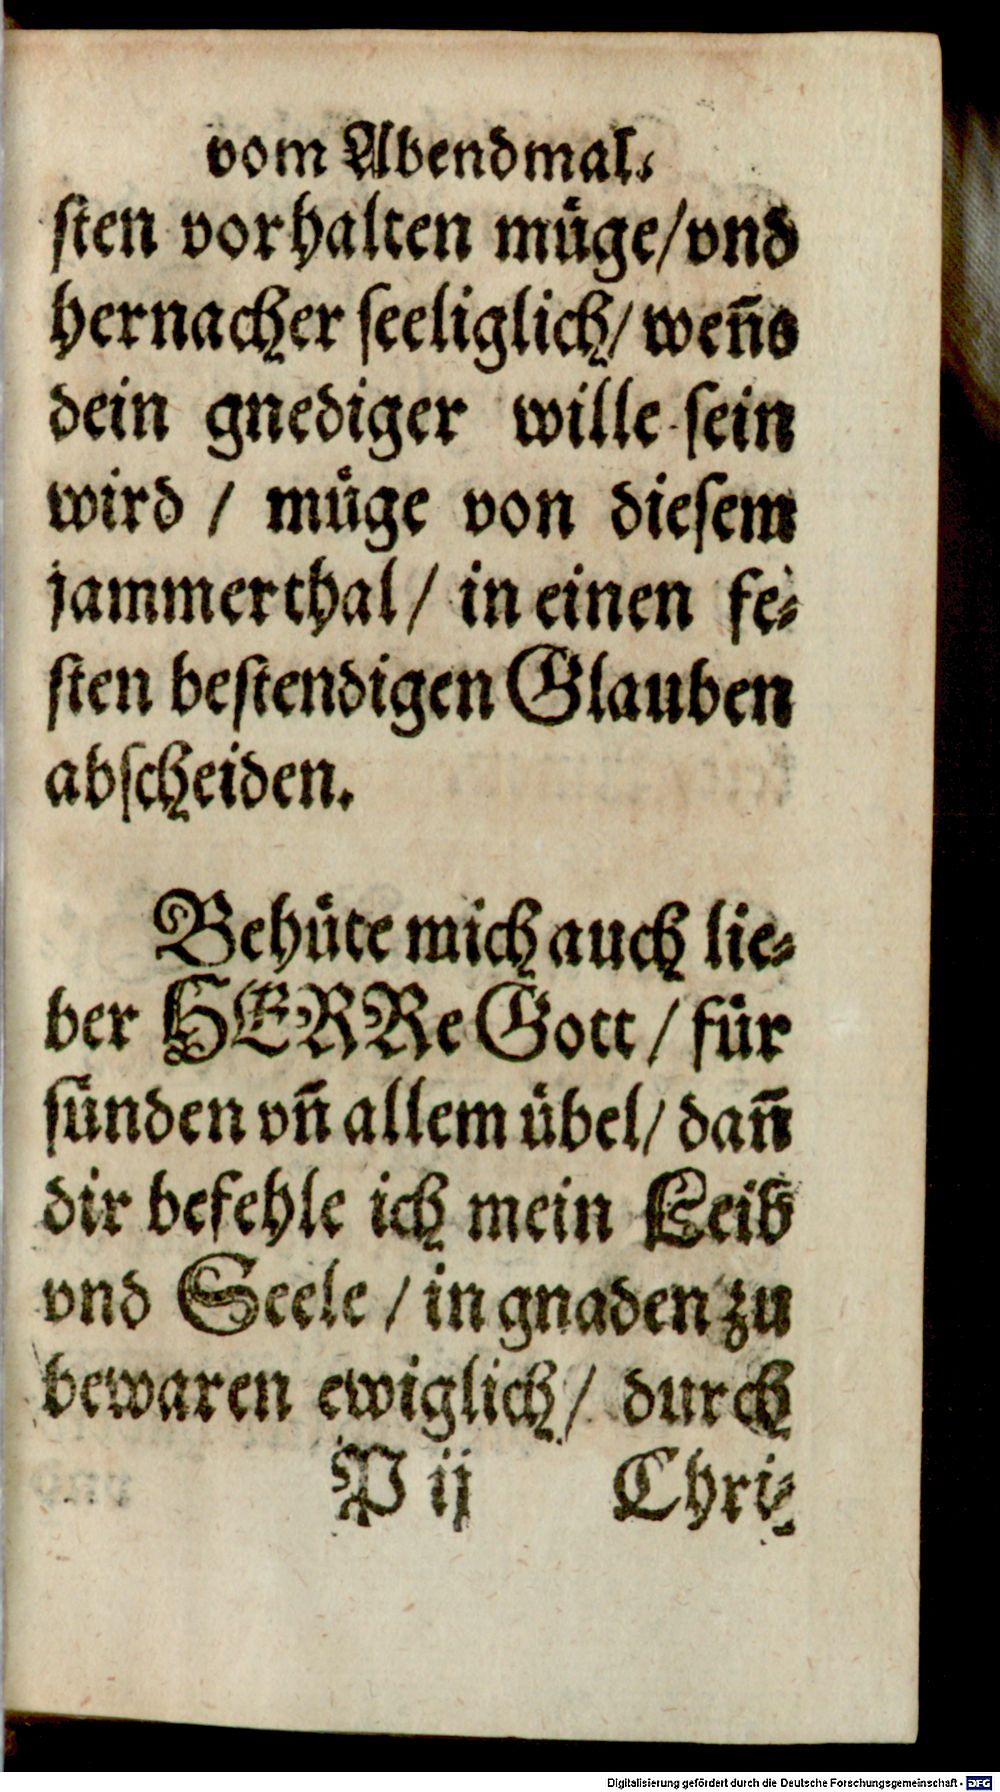 vom Abendmal.
sten vorhalten müge/vnd
hernacher seeliglich/ weñs
dein gnediger wille sein
wird / müge von diesem
jammerthal/ in einen fe-
sten bestendigen Glauben
abscheiden.
Behüte mich auch lie-
ber HERRe Gott/ für
sünden vñ allem übel/ dañ
dir befehle ich mein Leib
vnd Seele/ in gnaden zu
bewaren ewiglich/ durch
P ij Chri-
Digitalisierung gefördert durch die Deutsche Forschungsgemeinschaft - DFG